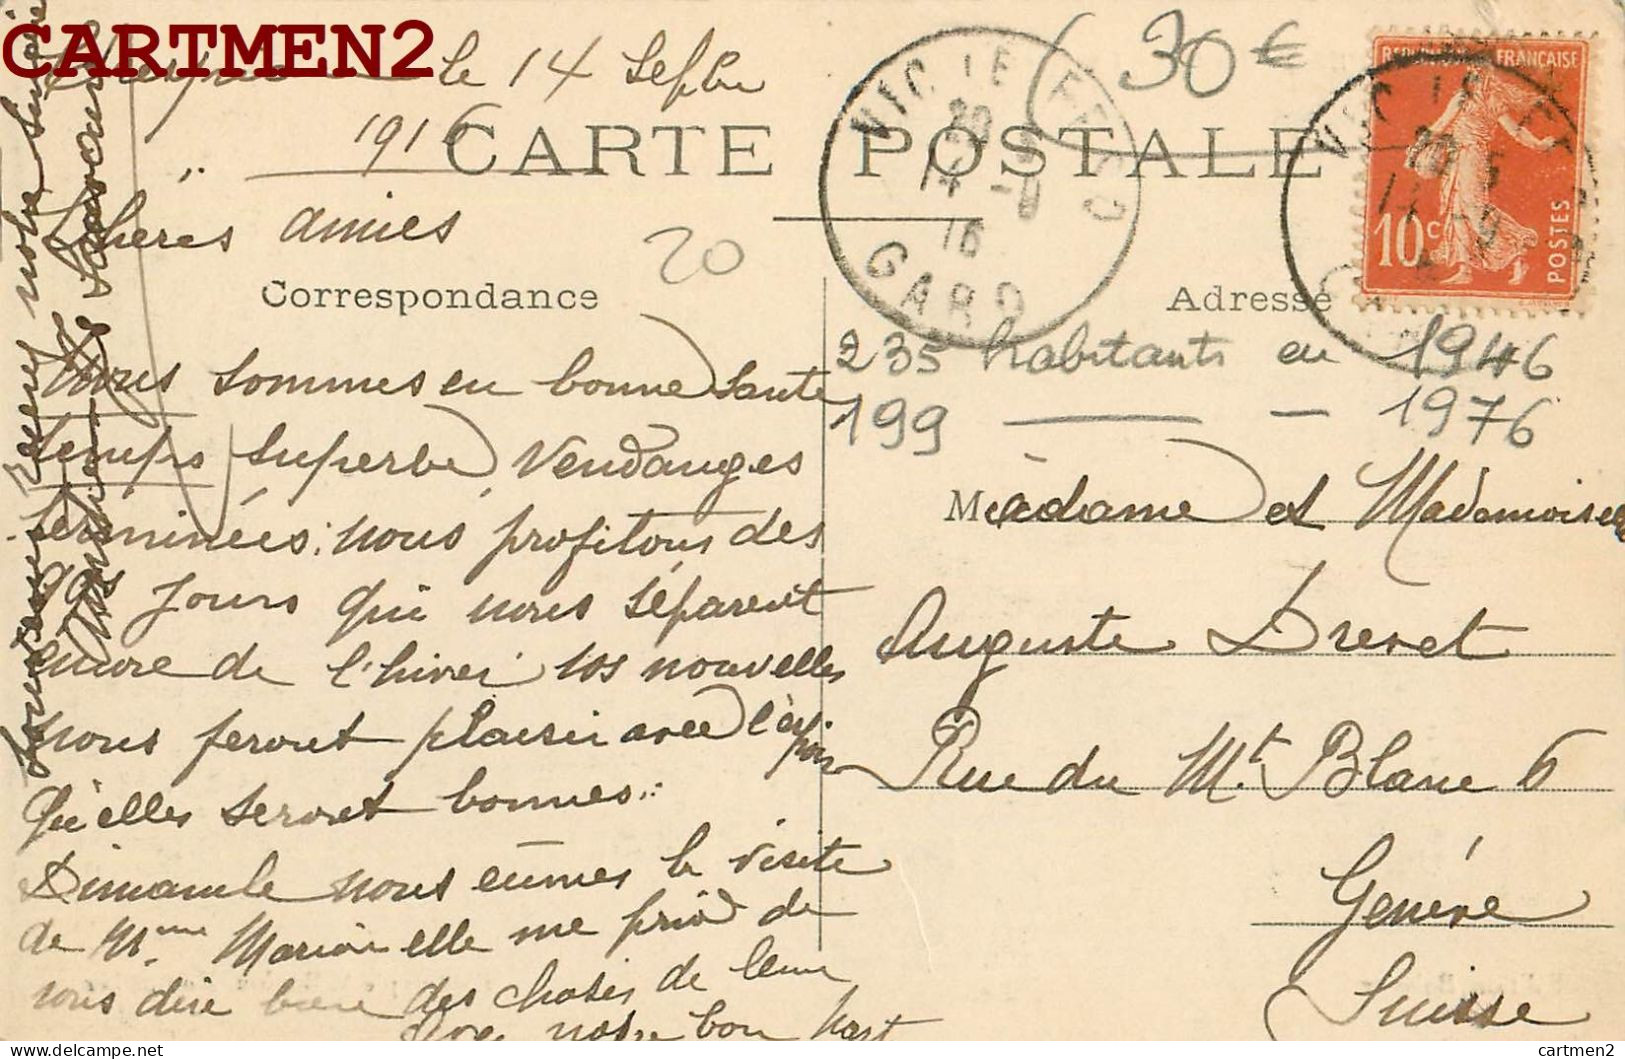 CARTMEN2
le 14 Septbre
1916
CARTE POSTALE
Chères amies
Correspondance
Adresse
20
30€
VIC-LE-FESQ
20
14 -9
16
GARD
REPUBLIQUE FRANÇAISE
10c
POSTES
235 habitants en 1946
199 — - 1976
Nous sommes en bonne Santé
temps superbe, Vendanges
terminées; nous profitons des
qqs Jours qui nous séparent
encore de l'hiver. Vos nouvelles
nous feront plaisir avec l'espoir
qu'elles seront bonnes.
Dimanche nous eûmes la visite
de Mme Marion elle me prie de
vous dire bien des choses de leur
part
Avec notre bon
à
Madame et Mademoiselle
Auguste Drevet
Rue du Mt Blanc 6
Genève
Suisse
cartmen2